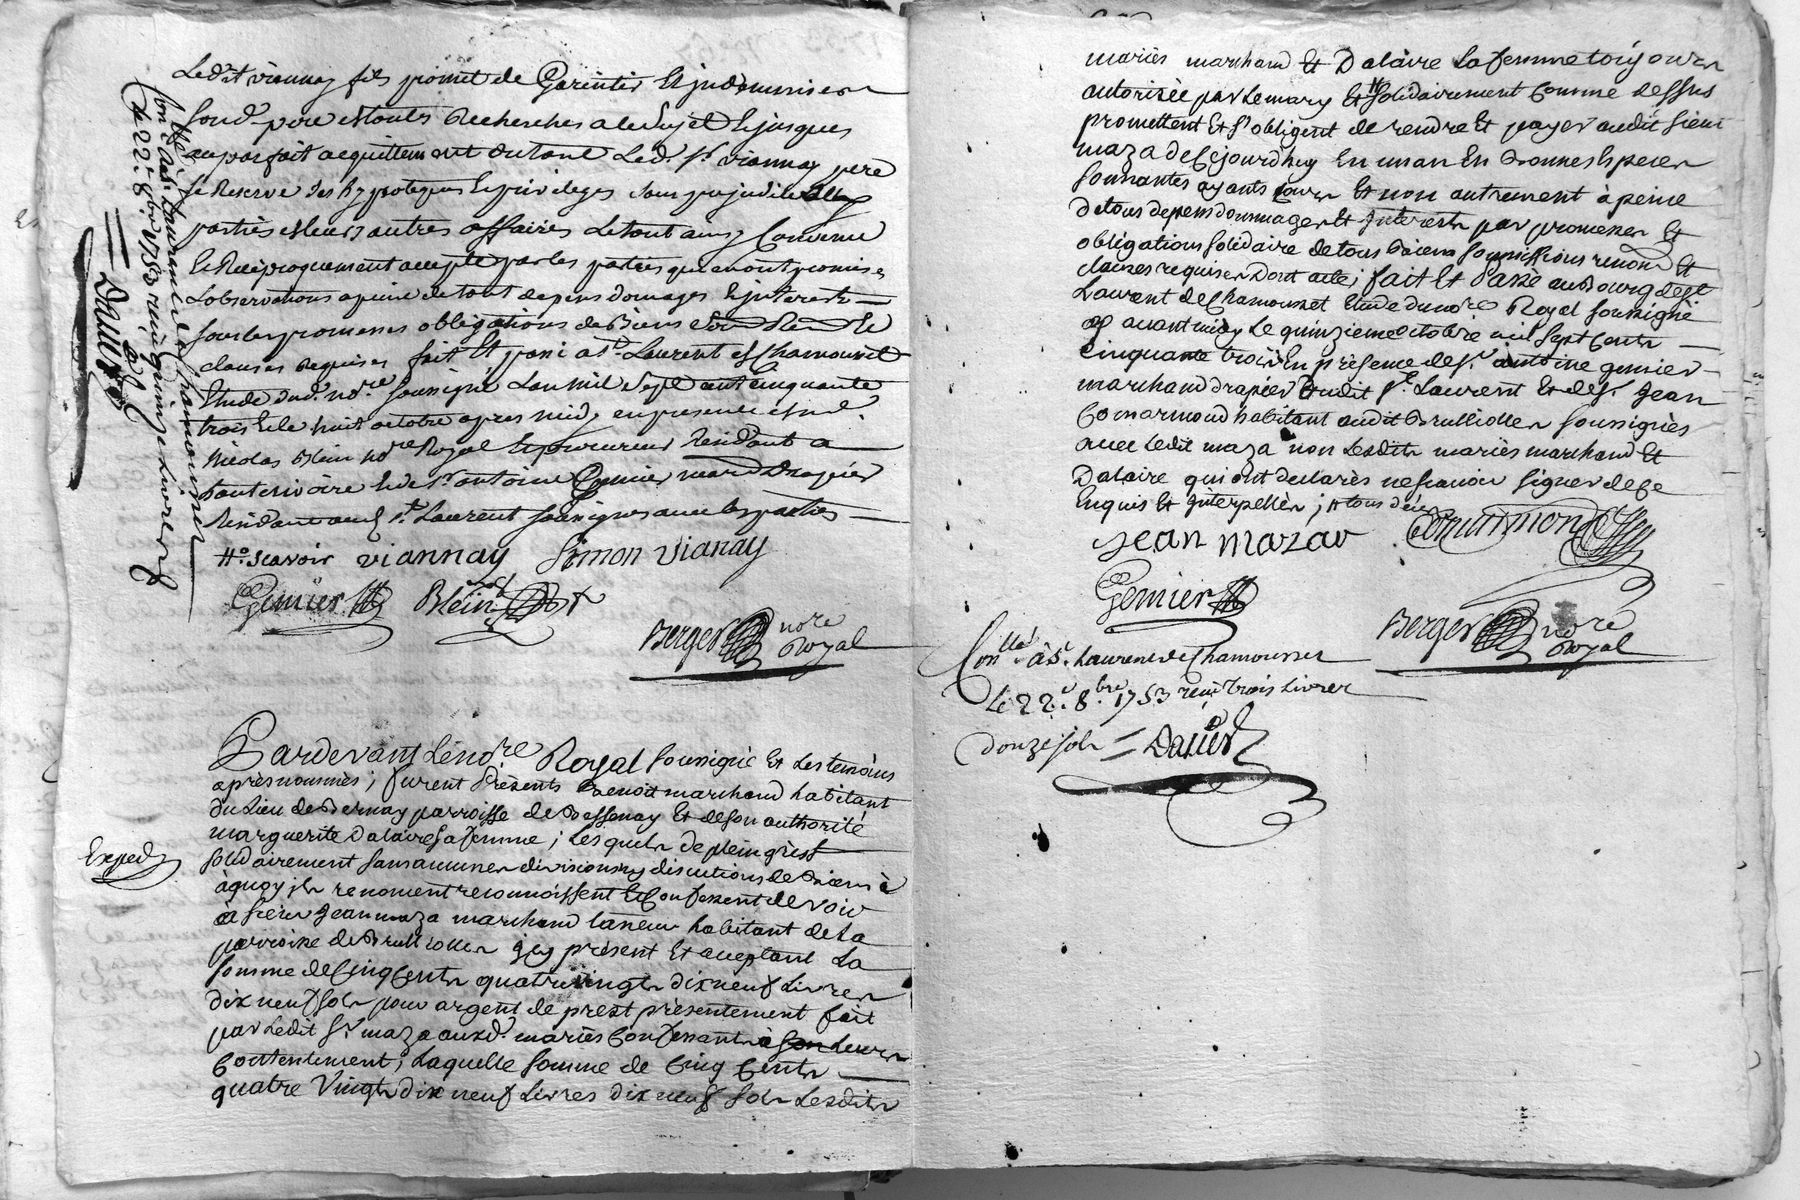 Ledit viannay fils promet de Garentir et jndemniser
Sond. pere et toutes Recherches a ce Sujet et jusques
au parfait acquittement du tout Led. Sr. viannay pere
se Reserve Ses hypoteques et privileges Sans prejudice aux
parties et leurs autres affaires Le tout ainsy Convenu
et Reciproquement accepté par les parties qui en ont promis
L'observations a peine de tout depens domages et jnterests
sous les promesses obligations de Biens
clauses requises fait et passé a St. Laurent de Chamousset
Etude dud. nore. soussigné L'an mil Sept cent Cinquante
trois et le huit octobre apres midy en presence de me.
Nicolas Blein nore Royal et procureur Residant a
hauterivoire et de Sr. antoine Gemier marchd Drapier
Residant aud. St. Laurent Soussignés avec les parties
Ho. scavoir viannay Simon vianay
Gemier Blein
Berger nore
Royal
Conllé à St. Laurant de Chamousset
le 22e. 8bre. 1753 reçu quinze Livres
Dauier
Pardevant Le nore Royal soussigné Et Les temoins
après nommés; furent Présents Benoit marchand habitant
du Lieu de Bernay parroisse de Bessenay Et de Son authorité
marguerite Dalaire Sa femme; Lesquels de plein grés et
solidairement sans aucunes divisions ny discutions de Biens à
à quoy jls renoncent reconnoissent et Confessent devoir
à sieur Jean maza marchand taneur habitant de La
parroisse de Brullioles jcy présent Et acceptant La
somme de Cinq Cents quatre vingts dix neuf Livres
dix neuf sols pour argent de prest présentement fait
par Ledit Sr. maza auxd. mariés Confessants à son Leurs
Contentement; Laquelle Somme de Cinq Cents
quatre Vingts dix neuf Livres dix neuf Sols Lesdits
Exped
mariés marchand Et Dalaire La femme toujours
autorisée par Le mary Et Solidairement Comme dessus
promettent Et s'obligent de rendre Et payer audit Sieur
maza de Cejourdhuy En un an En Bonnes Especes
Sonnantes ayants Cours Et non autrement à peine
de tous depens dommages Et jnterests par promesses Et
obligations solidaire de tous Biens soumissions renond Et
clauses requises Dont acte; fait Et Passé au Bourg de St
Laurent de Chamousset Etude du nore Royal soussigné
avant midy Le quinzieme octobre mil Sept Cents
Cinquante trois En présence de Sr. antoine gemier
marchand drapier dudit St. Laurent Et de Sr. Jean
Comarmond habitant audit Brullioles soussignés
avec Ledit maza non Lesdits mariés marchand Et
Dalaire qui ont declarés ne scavoir signer de Ce
Enquis Et Interpellés;
Jean mazar Comarmond
Gemier
Berger nore
Royal
Conllé à St. Laurent de Chamousset
Le 22e. 8bre. 1753 reçu trois Livres
douze sols = Dauier